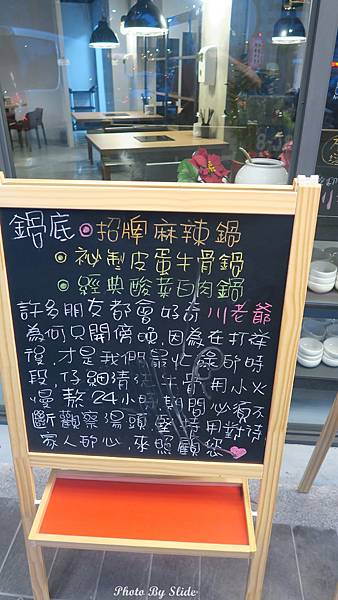 鍋底◎招牌麻辣鍋
◎祕製皮蛋牛骨鍋
◎經典酸菜白肉鍋
許多朋友都會好奇川老爺
為何只開傍晚,因為在打烊
後,才是我們最忙碌的時
段,仔細清洗牛骨,用小火
慢熬24小時,期間必須不
斷觀察湯頭,堅持用對待
家人的心,來照顧您
川
Photo By Slide